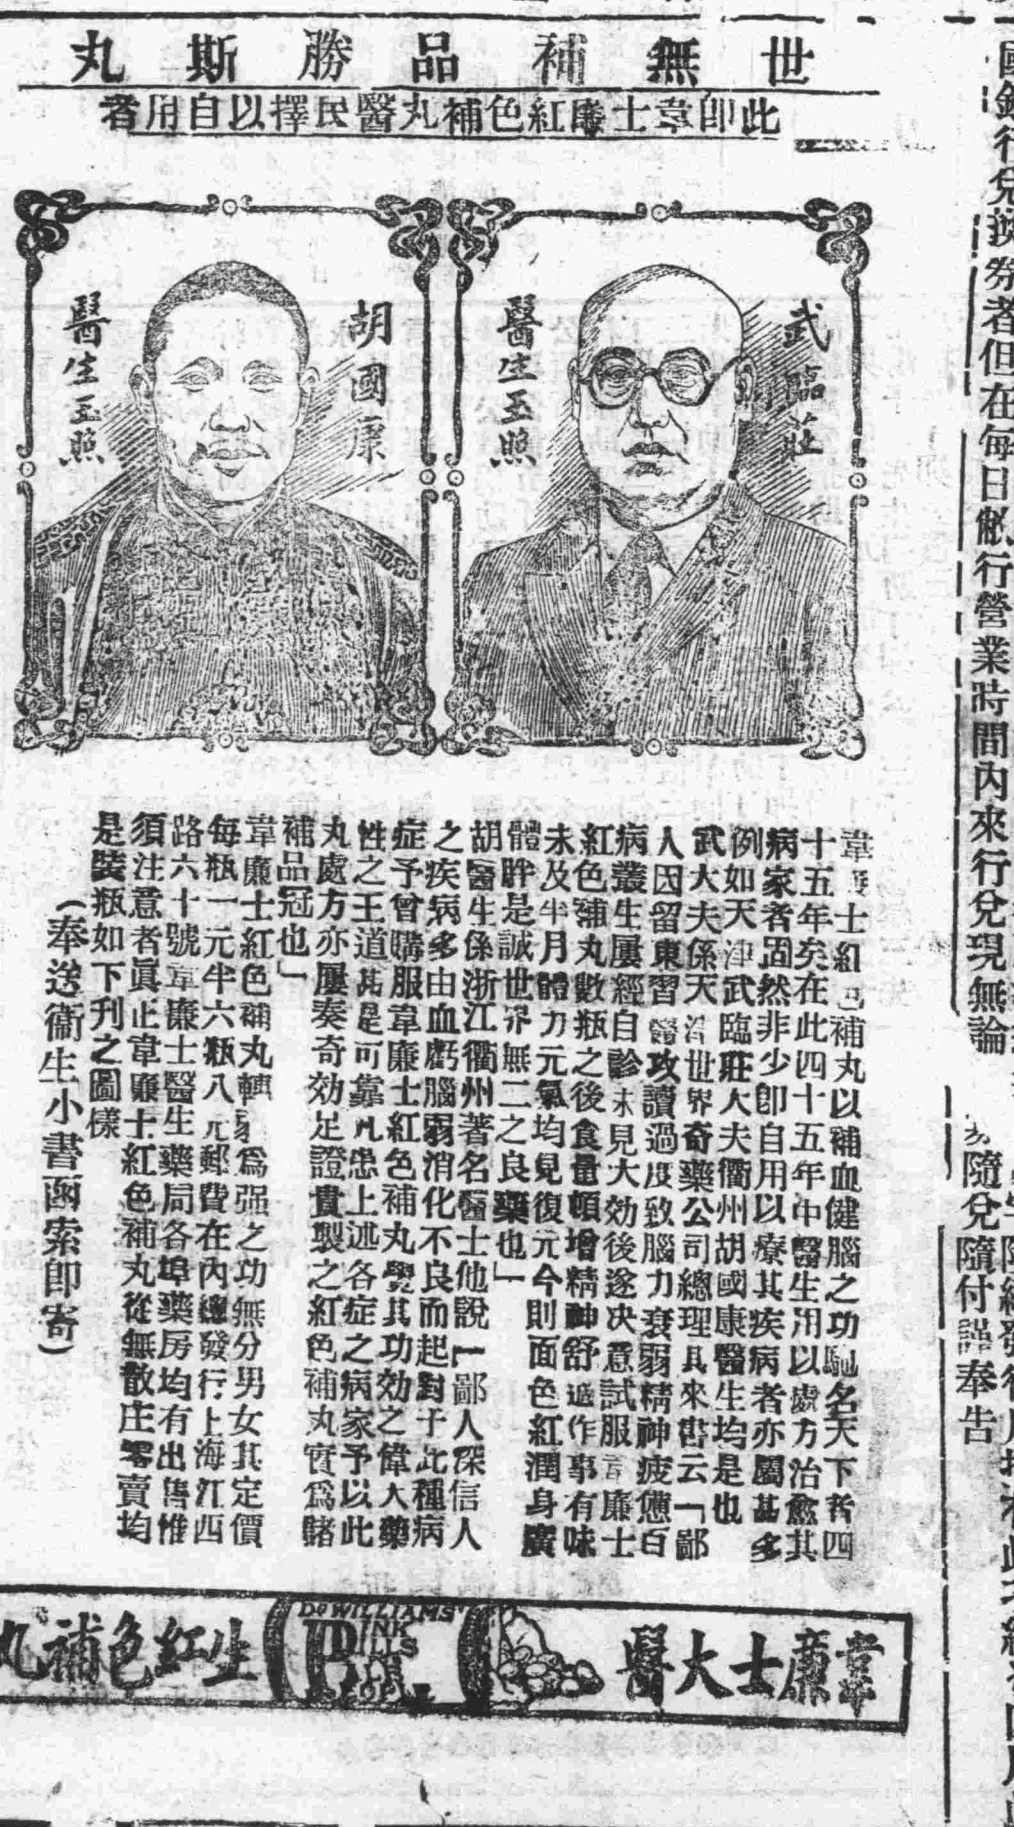 世無補品勝斯丸
此卽韋士廉紅色補丸醫民擇以自用者
武臨莊
醫生玉照
胡國康
醫生玉照
韋廉士紅色補丸以補血健腦之功馳名天下者四
十五年矣在此四十五年中醫生用以處方治愈其
病家者固然非少卽自用以療其疾病者亦屬甚多
例如天津武臨莊大夫衢州胡國康醫生均是也
武大夫係天津世界奇藥公司總理其來函云「鄙
人因留東習醫攻讀過度致腦力衰弱精神疲憊百
病叢生屢經自診未見大効後遂决意試服韋廉士
紅色補丸數瓶之後食量頓增精神舒適作事有味
未及半月體力元氣均見復元今則面色紅潤身廣
體胖是誠世界無二之良藥也」
胡醫生係浙江衢州著名醫士他說「鄙人深信人
之疾病多由血虧腦弱消化不良而起對于此種病
症予曾購服韋廉士紅色補丸覺其功効之偉大藥
性之王道甚是可靠凡患上述各症之病家予以此
丸處方亦屢奏奇効足證貴製之紅色補丸實爲諸
補品冠也」
韋廉士紅色補丸轉弱爲强之功無分男女其定價
每瓶一元半六瓶八元郵費在內總發行上海江西
路六十號韋廉士醫生藥局各埠藥房均有出售惟
須注意者眞正韋廉士紅色補丸從無散庄零賣均
是裝瓶如下刋之圖樣
（奉送衞生小書函索卽寄）
韋廉士大醫生紅色補丸
DR WILLIAMS'
PINK
PILLS
國銀行兌換券者但在每日敝行營業時間內來行兌現無論
隨兌隨付謹奉告